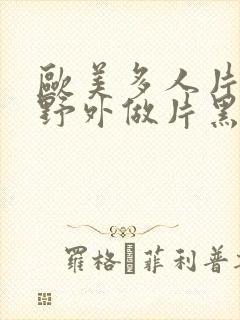 歐美多人片
野外做片黑
羅格·菲利普